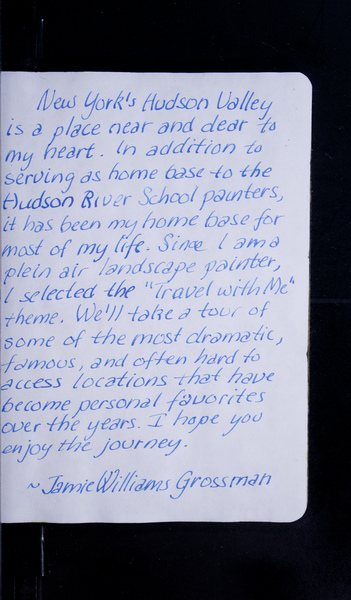 New York's Hudson Valley
is a place near and dear to
my heart. In addition to
serving as home base to the
Hudson River School painters,
it has been my home base for
most of my life. Since I am a
plein air landscape painter,
I selected the "Travel with Me"
theme. We'll take a tour of
some of the most dramatic,
famous, and often hard to
access locations that have
become personal favorites
over the years. I hope you
enjoy the journey.
~ Jamie Williams Grossman